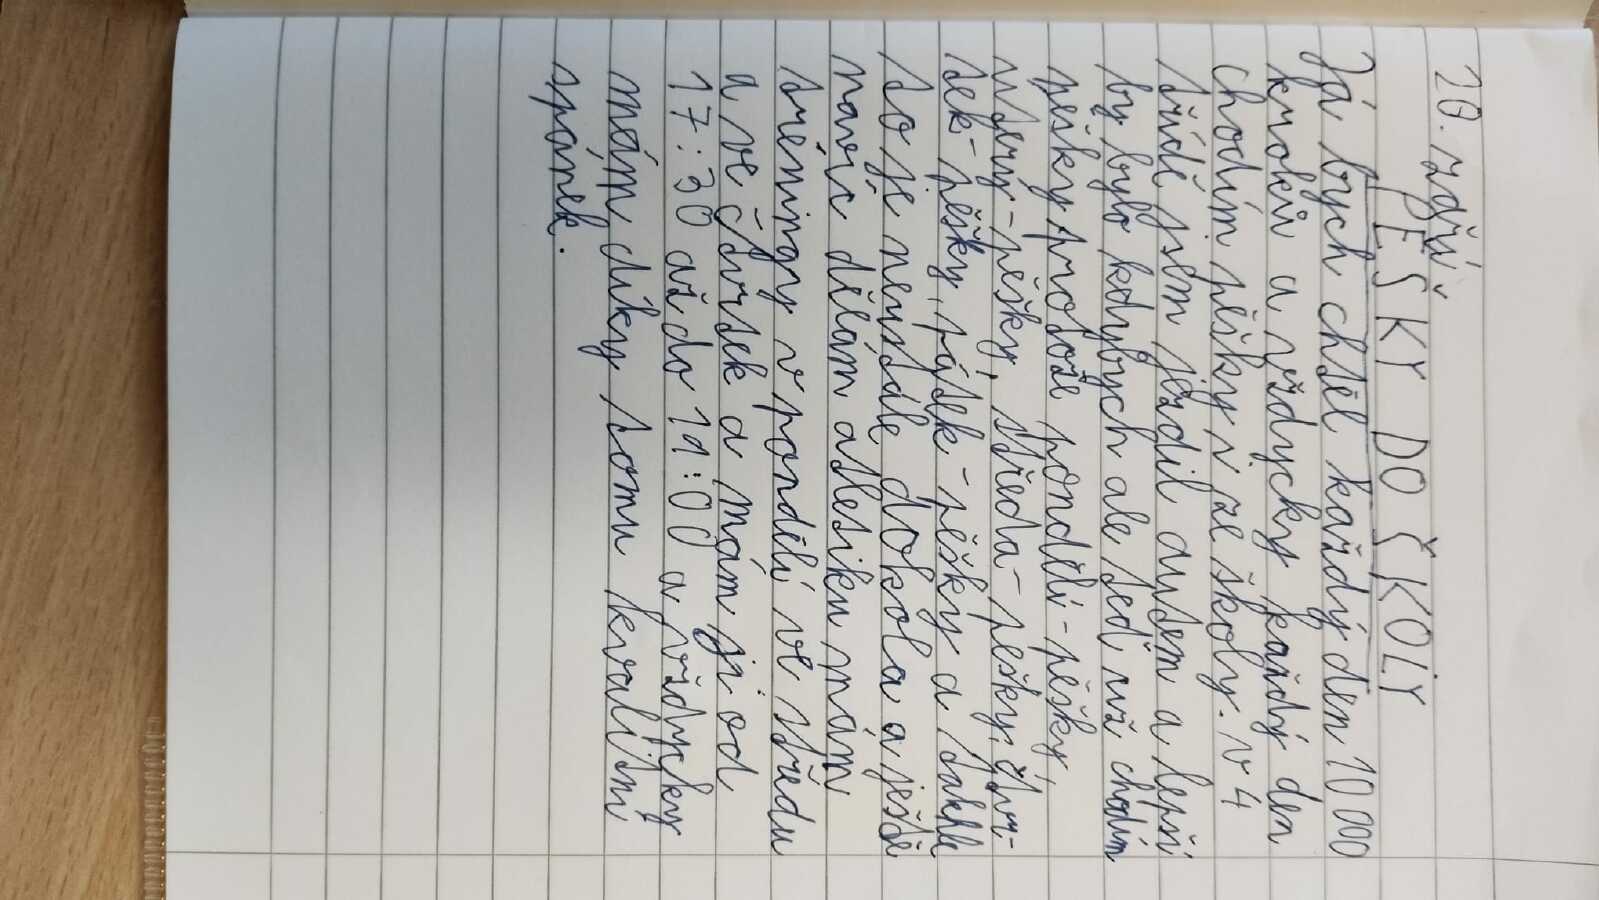 20. září
PĚŠKY DO ŠKOLY
Já bych chtěl každý den 10 000
kroků a vždycky každý den
chodím pěšky i ze školy. v 4
třídě jsem jezdil autem a lepší
by bylo kdybych ale teď už chodím
pěšky protože pondělí - pěšky,
úterý - pěšky, středa - pěšky, čtvr-
tek - pěšky, pátek - pěšky a takhle
to je neustále dokola a ještě
navíc dělám atletiku mám
tréningy v pondělí ve středu
a ve čtvrtek a mám ji od
17:30 až do 19:00 a vždycky
mám díky tomu kvalitní
spánek.